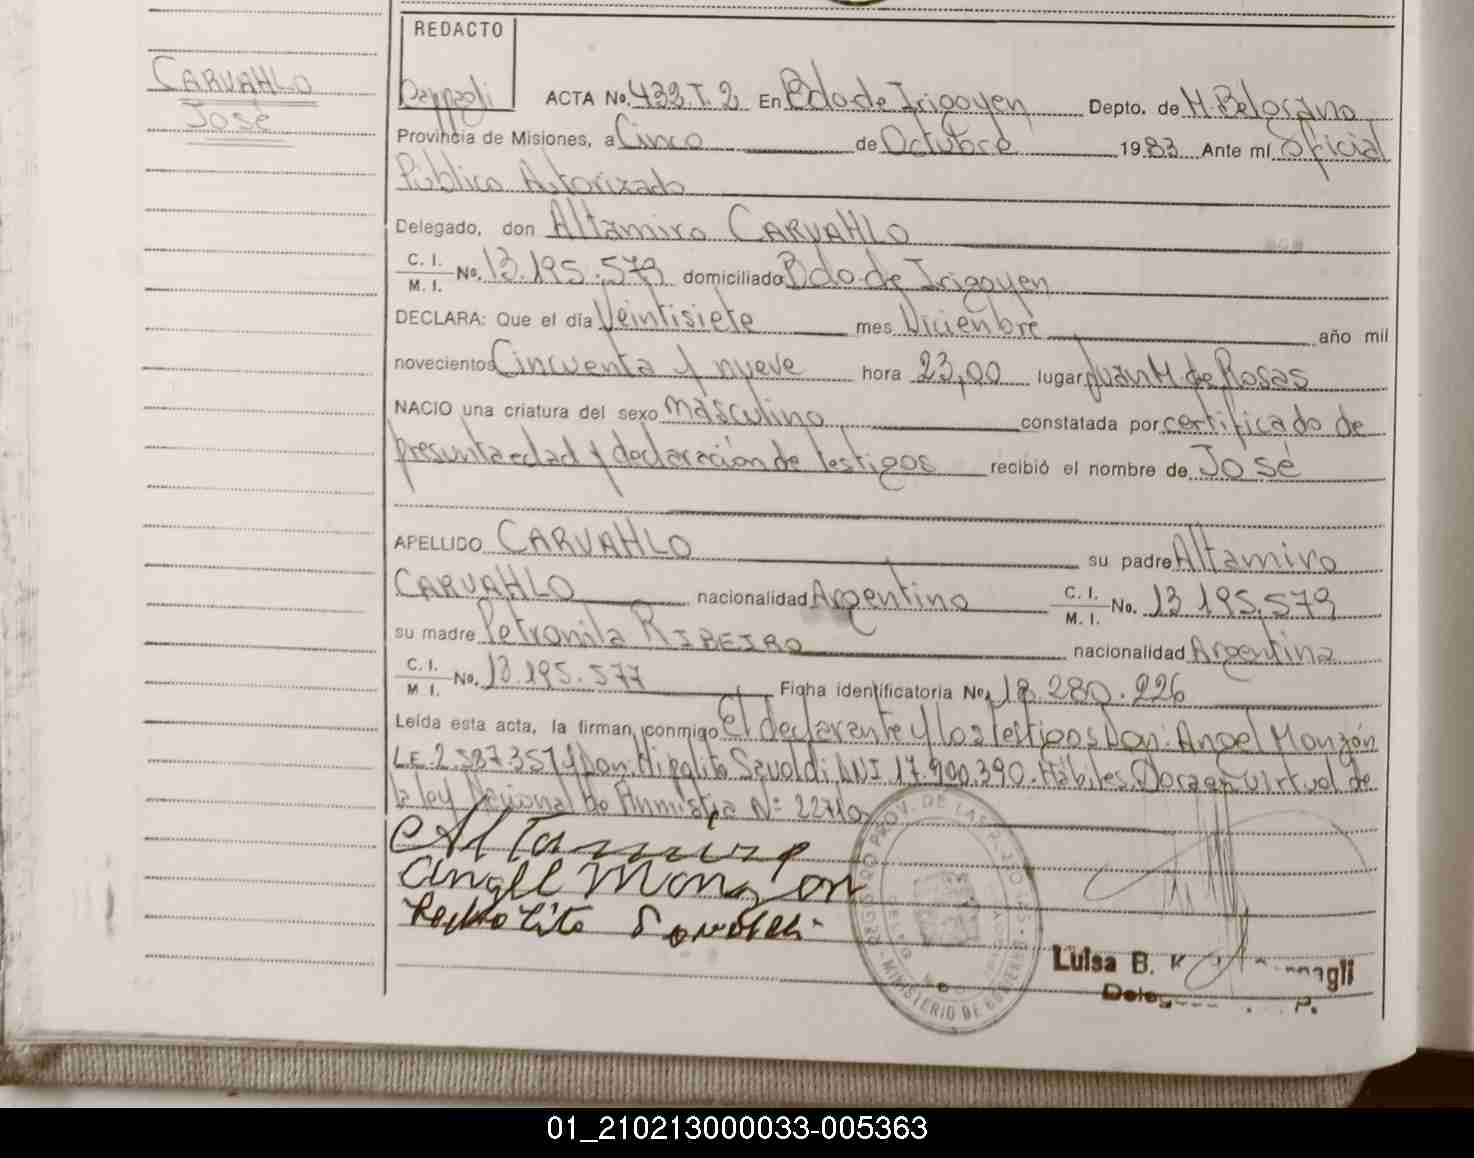 REDACTO
CARVAHLO
José
ACTA No. 433.T.2 En Bdo de Irigoyen Depto. de M. Belgrano
Provincia de Misiones, a Cinco de Octubre 1983 Ante mí Oficial
Publico Autorizado
Delegado, don Altamiro CARVAHLO
C. I.
M. I. No. 13.195.579 domiciliado Bdo de Irigoyen
DECLARA: Que el día Veintisiete mes Diciembre año mil
novecientos Cincuenta y nueve hora 23,00 lugar Juan M de Rosas
NACIO una criatura del sexo masculino constatada por certificado de
presunta edad y declaración de testigos recibió el nombre de José
APELLIDO CARVAHLO su padre Altamiro
CARVAHLO nacionalidad Argentino C. I. M. I. No. 13 195.579
su madre Petronila RIBEIRO nacionalidad Argentina
C. I.
M. I. No. 13.195.577 Ficha identificatoria No. 18.280.226
Leída esta acta, la firman conmigo El declarante y los testigos Don: Angel Monzón
LE. 2.587.357 y Don. Hipolito DNI 17.900.390. Habiles. en virtud de
la ley Nacional de Anmistia N: 22410
Altamiro
angel Monzon
PROV. DE MISIONES
MINISTERIO DE GOBIERNO
Luisa B.